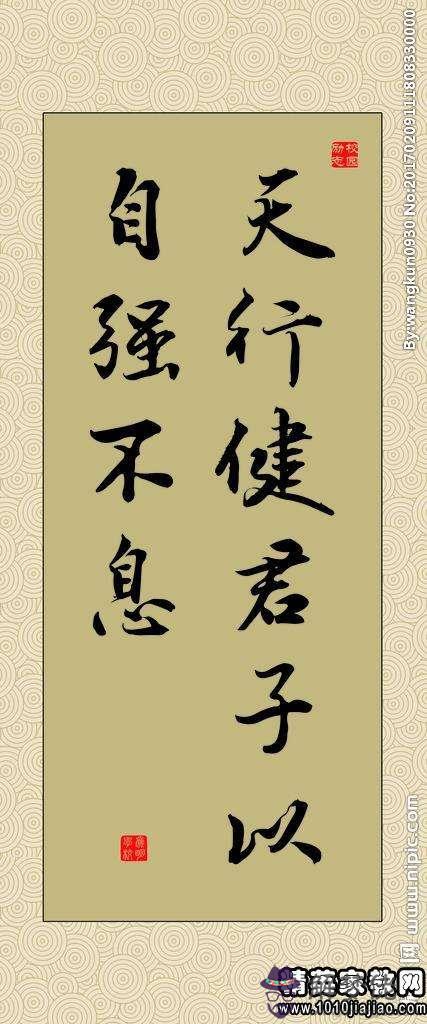 天行健君子以
自强不息
校园
励志
By:wangkun0930 No:20170209111808330000
网 www.nipic.com
精英家教网
www.1010jiajiao.com